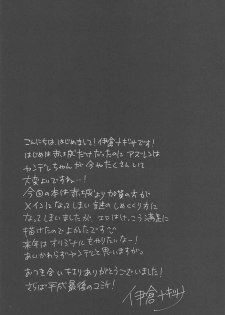 こんにちは、はじめまして！伊倉ナギサです！
はじめは赤城だけだったのに アズレンは
ヤンデレちゃんが今やたくさんいて
大変よいですね…！
今回の本は赤城より加賀の方が
メインになってしまい謎のしめくくりに
なってしまいましたが、エロはけっこう満足に
描けたのでよかったです
来年はオリジナルもやりたいなー！
あいかわらずヤンデレと思いますが。
おつき合い下さりありがとうございました！
さらば平成最後のコミケ！
伊倉ナギサ